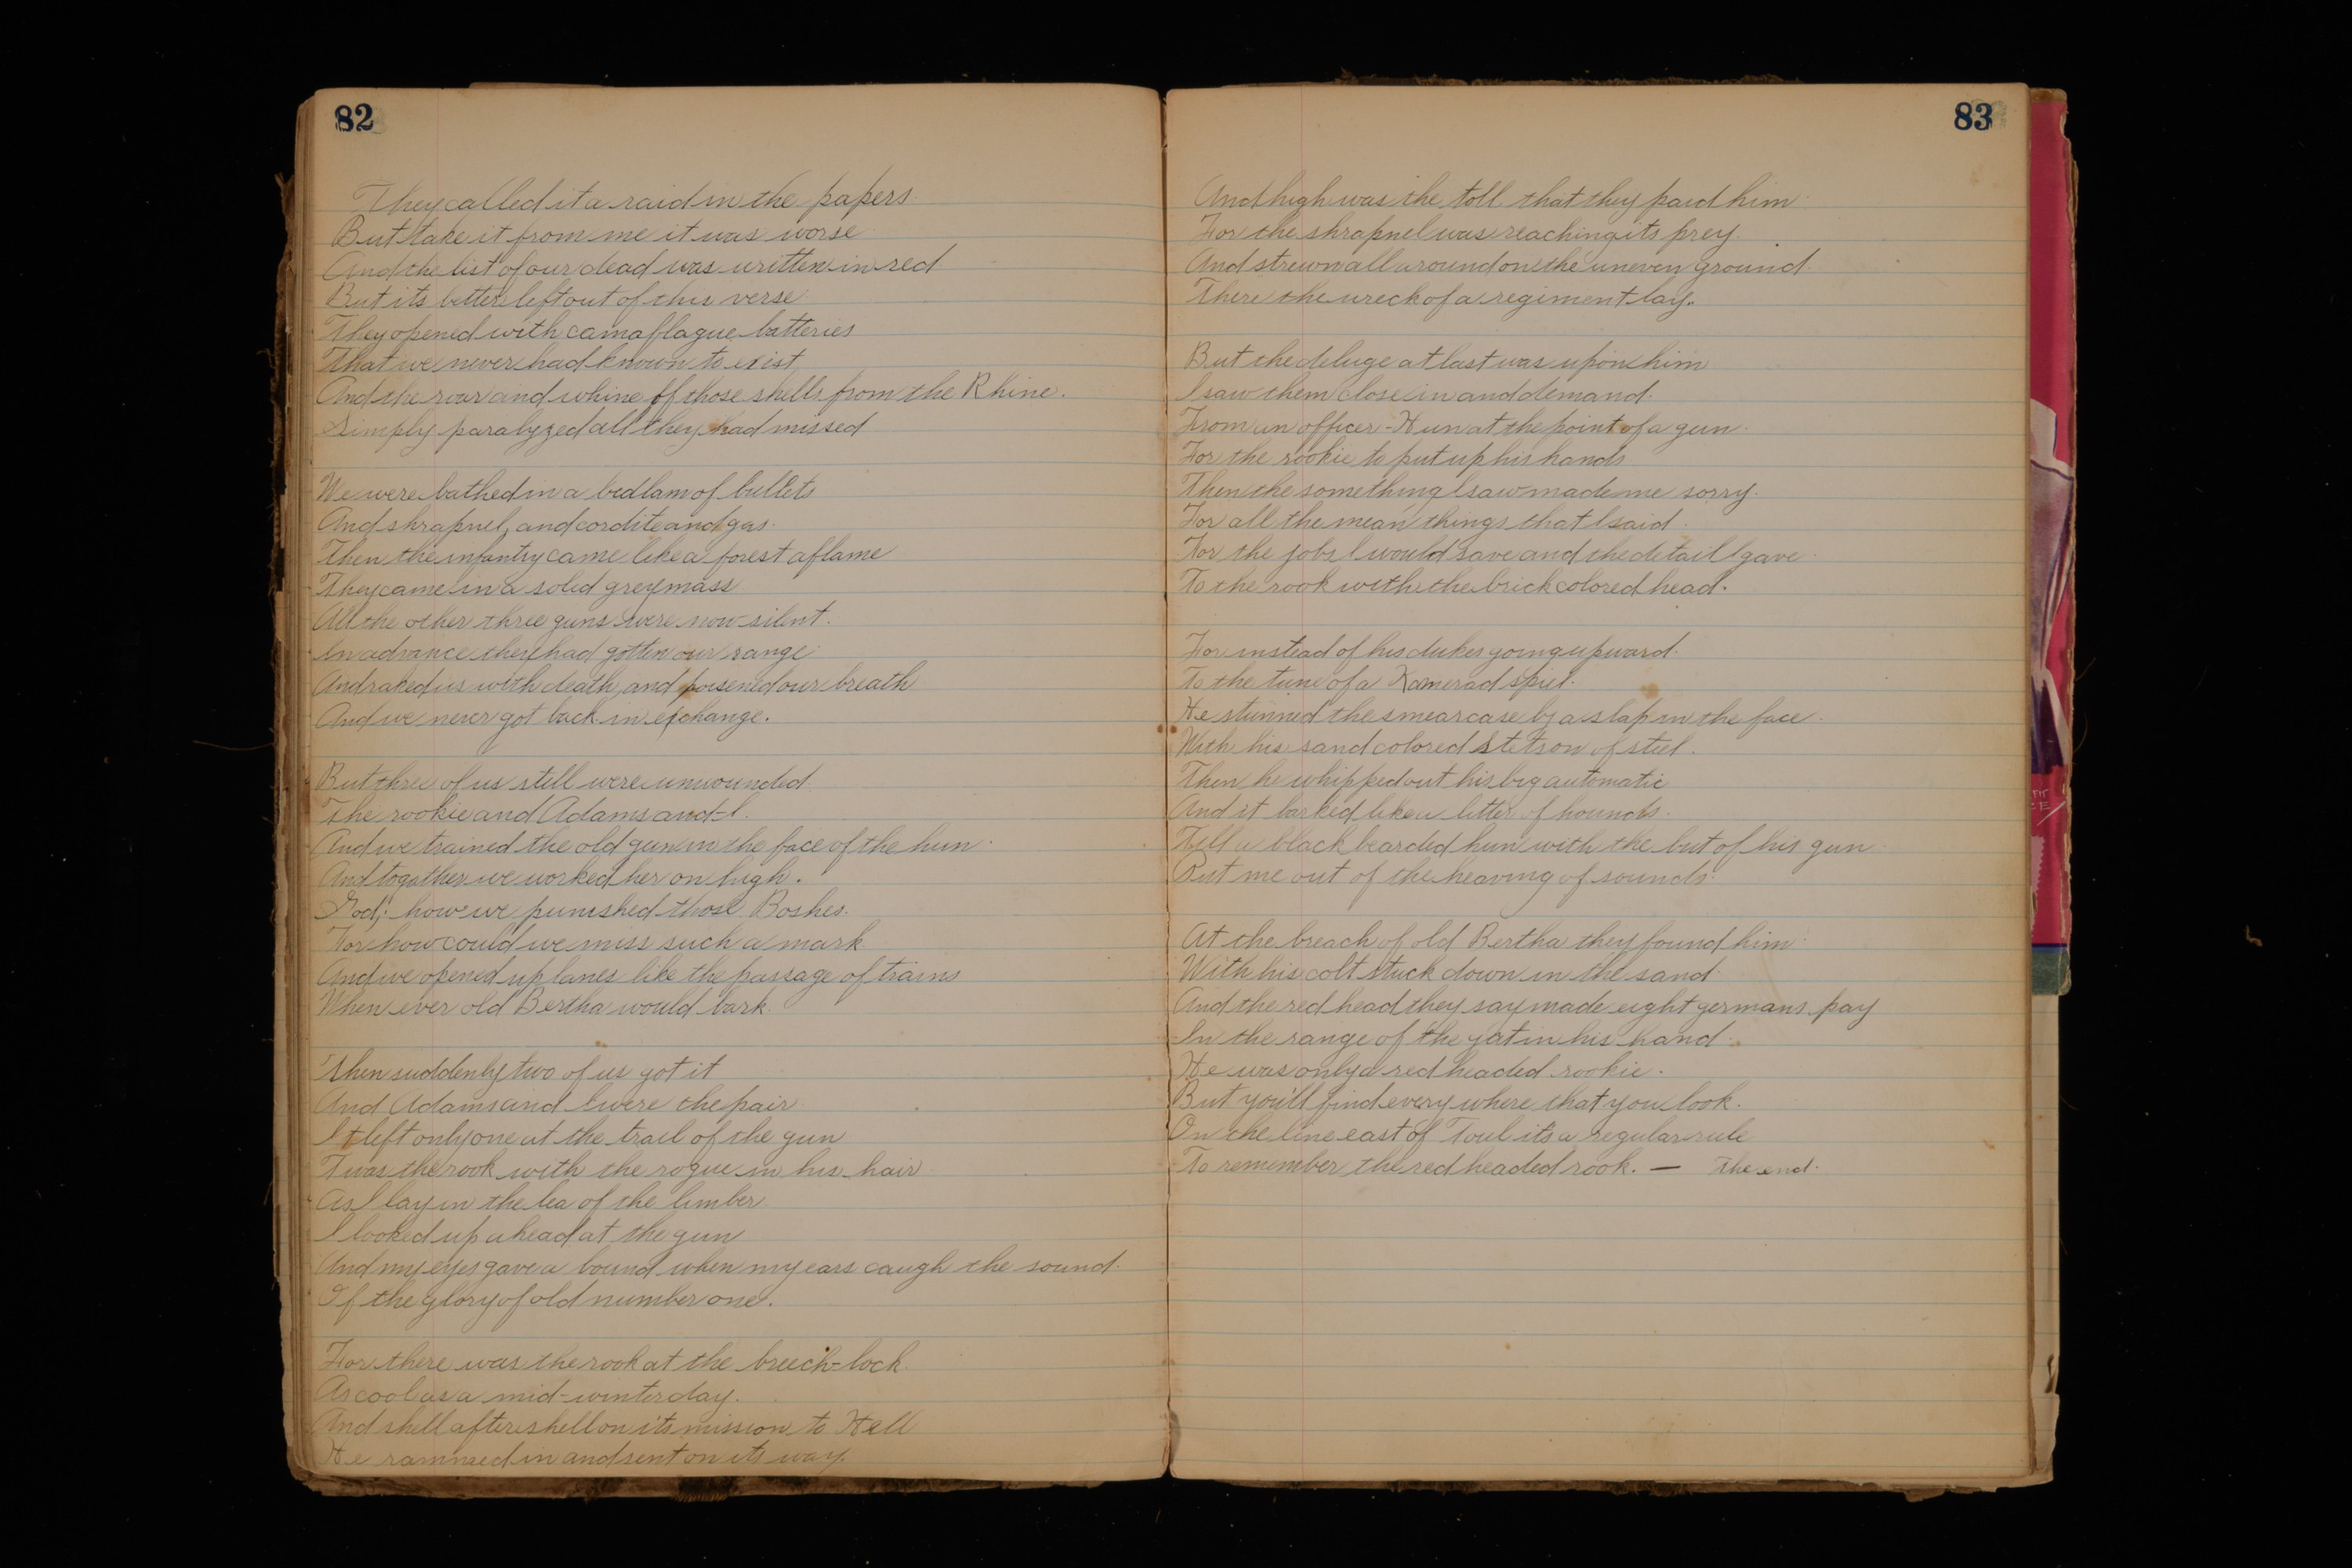 82
They called it a raid in the papers
But take it from me it was worse
And the list of our dead was written in red
But its better left out of this verse
They opened with camaflague batteries
That we never had known to exist
And the roar and whine of those shells from the Rhine.
Simply paralyzed all they had missed
We were bathed in a bedlam of bullets
And shrapnel, and cordite and gas.
Then the infantry came like a forest aflame
They came in a solid grey mass
All the other three guns were now silent.
In advance they had gotten our range
And raked us with death, and poisened our breath
And we never got back in exchange.
But three of us still were unwounded
The rookie and Adams and I.
And we trained the old gun in the face of the hun.
And togather we worked her on high.
God; how we punished those Boshes.
For how could we miss such a mark
And we opened up lanes like the passage of trains
When ever old Bertha would bark.
Then suddenly two of us got it
And Adams and I were the pair.
It left only one at the trail of the gun
Twas the rook with the rogue in his hair
As I lay in the lea of the limber
I looked up ahead at the gun
And my eyes gave a bound when my ears caugh the sound.
Of the glory of old number one.
For there was the rook at the breech-lock.
As cool as a mid-winter day.
And shell after shell on its mission to Hell
He rammed in and sent on its way.
83
And high was the toll that they paid him.
For the shrapnel was reaching its prey.
And strewn all around on the uneven ground.
There the wreck of a regiment lay.
But the deluge at last was upon him
I saw them close in and demand.
From an officer-Hun at the point of a gun.
For the rookie to put up his hands
Then the something I saw made me sorry.
For all the mean things that I said.
For the jobs I would save and the detail I gave.
To the rook with the brick colored head.
For instead of his dukes going upward.
To the tune of a Kamerad spiel.
He stunned the smearcase by a slap in the face.
With his sand colored Stetson of steel.
Then he whipped out his big automatic
And it barked like a litter of hounds.
Till a black bearded hun with the but of his gun
Put me out of the hearing of sounds.
At the breach of old Bertha they found him.
With his colt stuck down in the sand.
And the red head they say made eight germans pay
In the range of the gat in his hand.
He was only a red headed rookie.
But you'll find every where that you look.
On the line east of Toul its a regular rule
To remember the red headed rook. — The end.